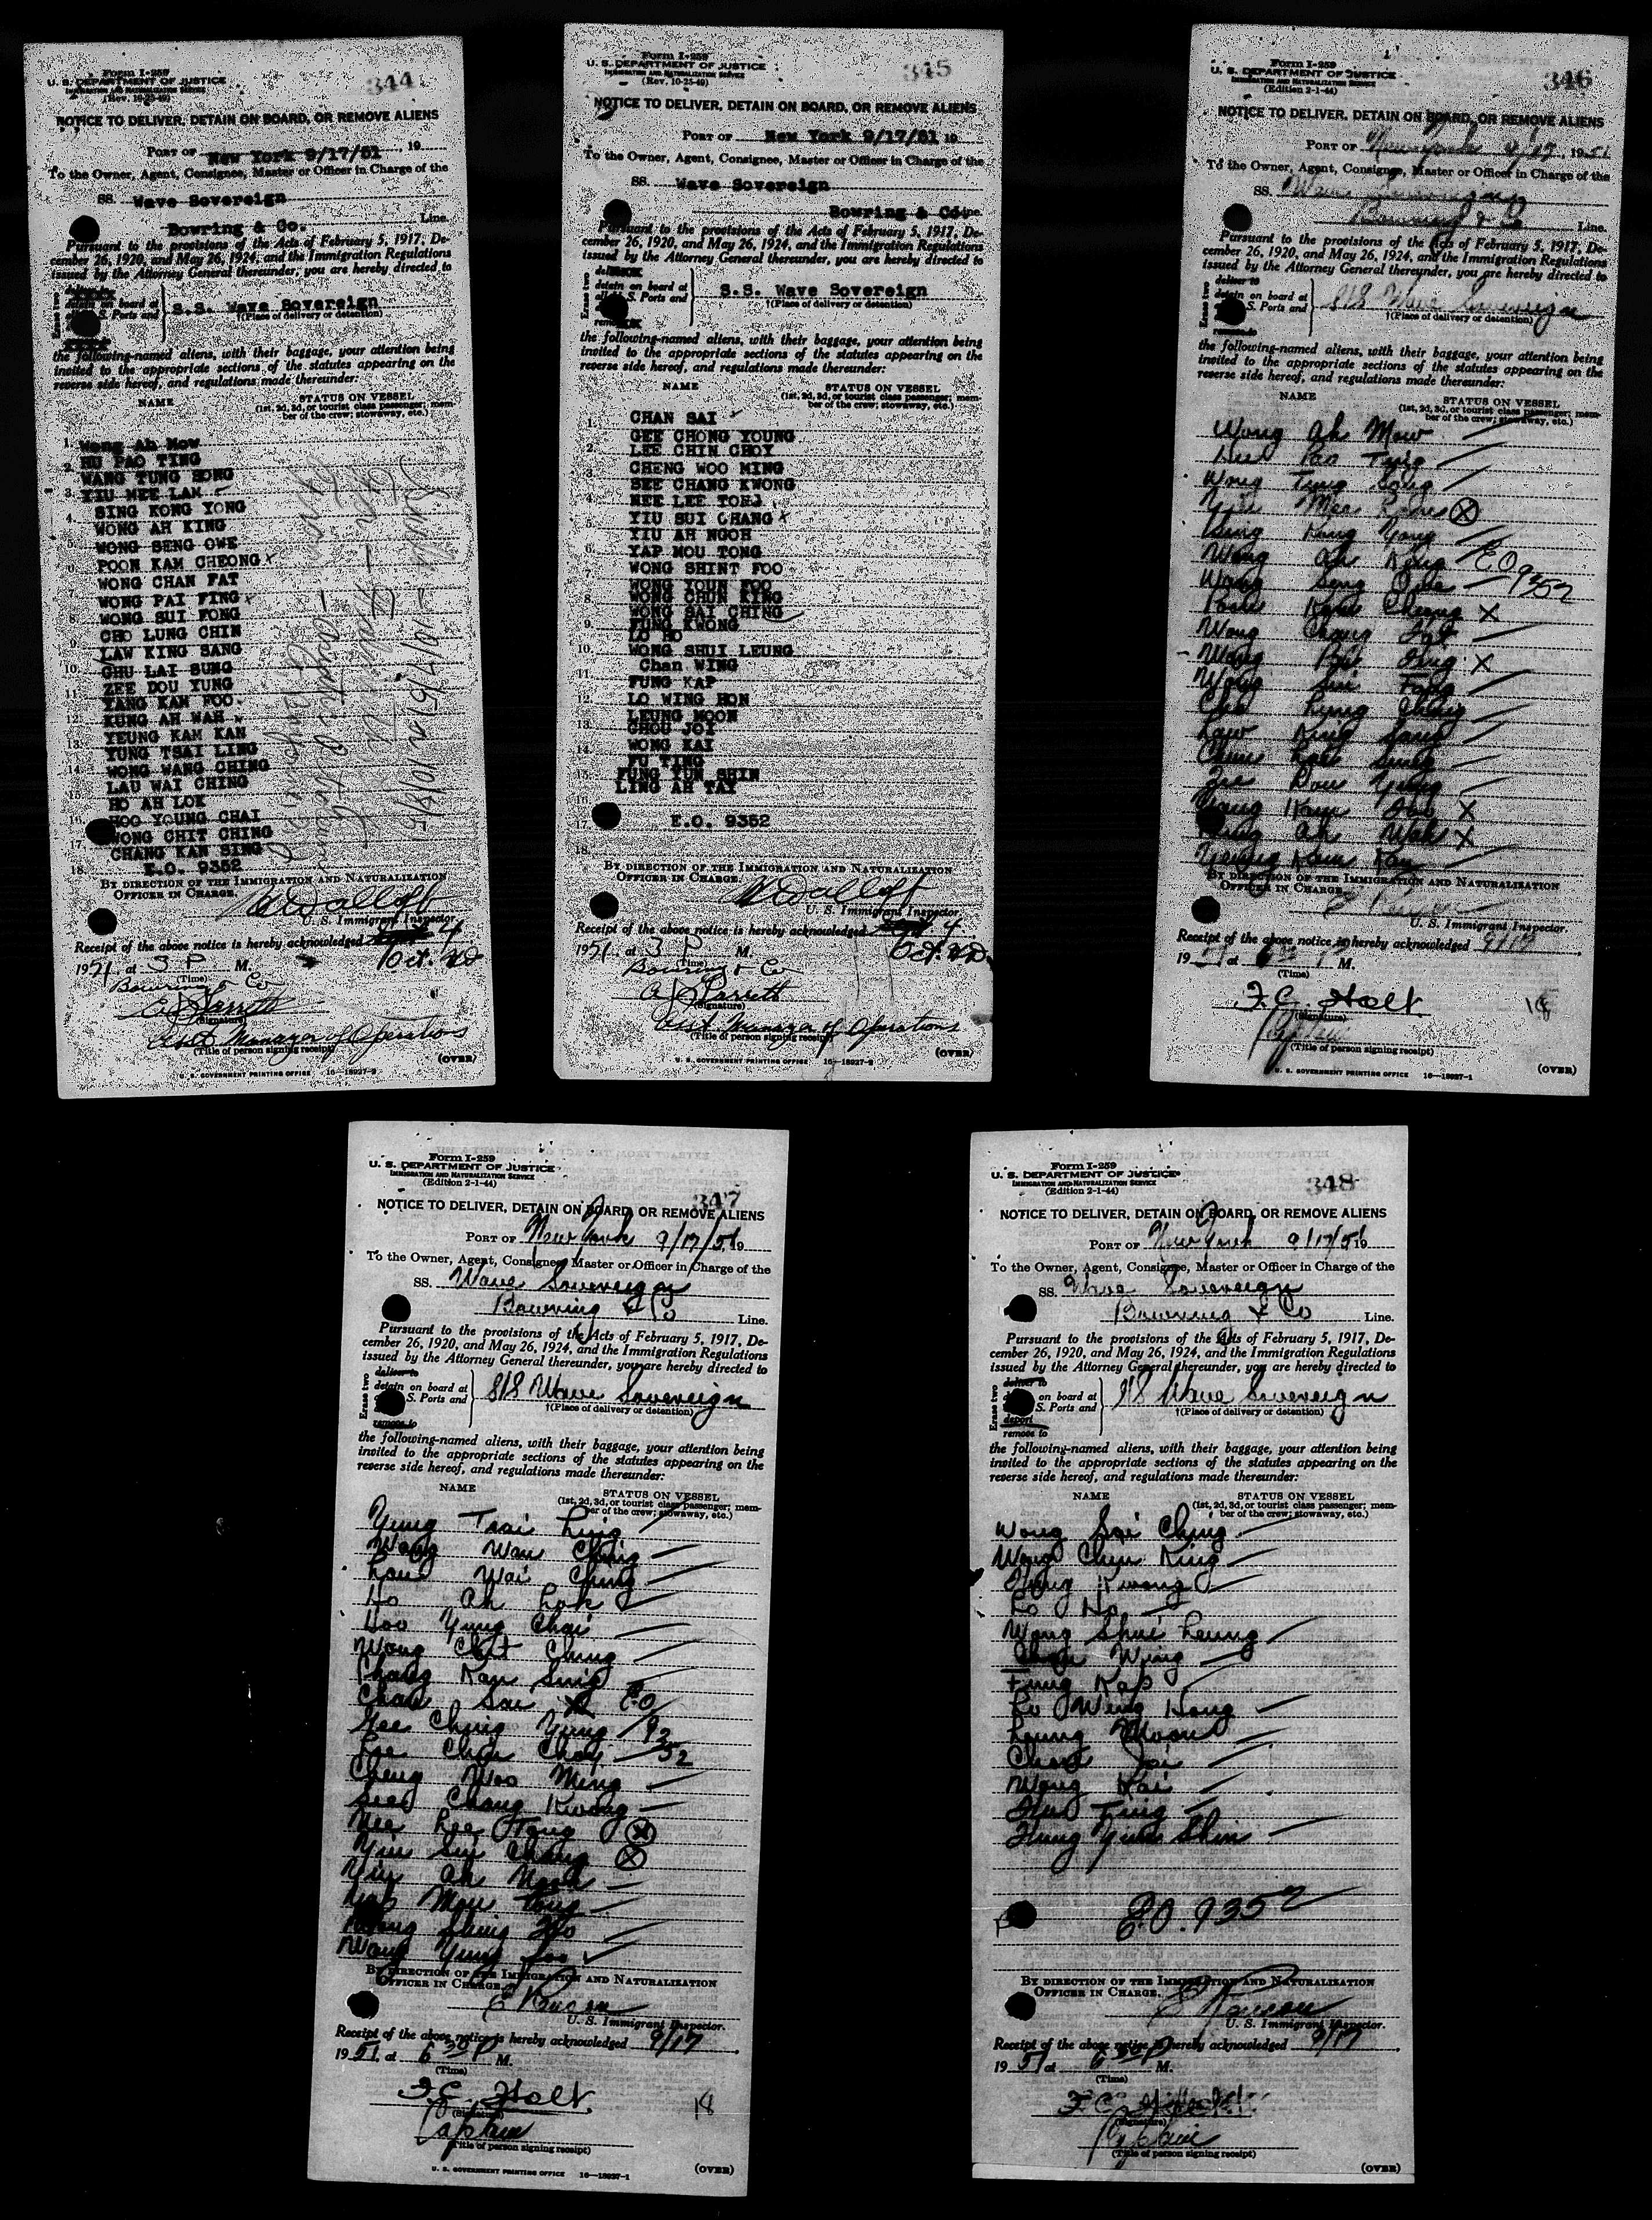 Form I-259
344
U. S. DEPARTMENT OF JUSTICE
IMMIGRATION AND NATURALIZATION SERVICE
(Rev. 10-25-49)
NOTICE TO DELIVER, DETAIN ON BOARD, OR REMOVE ALIENS
PORT OF New York 9/17/51, 19
To the Owner, Agent, Consignee, Master or Officer in Charge of the
SS. Wave Sovereign
Bowring & Co. Line.
Pursuant to the provisions of the Acts of February 5, 1917, De-
cember 26, 1920, and May 26, 1924, and the Immigration Regulations
issued by the Attorney General thereunder, you are hereby directed to
Erase two
detain on board at
S. Ports and
S.S. Wave Sovereign
†(Place of delivery or detention)
the following-named aliens, with their baggage, your attention being
invited to the appropriate sections of the statutes appearing on the
reverse side hereof, and regulations made thereunder:
NAME STATUS ON VESSEL
(1st, 2d, 3d, or tourist class passenger; mem-
ber of the crew; stowaway, etc.)
1. Wong Ah Mow
HU PAO TING
2. WANG TUNG SONG
3. YIU MEE LAM
SING KONG YONG
4. WONG AH KING
5. WONG SENG OWE
6. POON KAM CHEONG x
WONG CHAN FAT
7. WONG PAI FING x
8. WONG SUI FONG
9. CHO LUNG CHIN
LAW KING SANG
10. CHU LAI SUNG
11. ZEE DOU YUNG
YANG KAM FOO
12. KUNG AH WAH
YEUNG KAM KAN
13. YUNG TSAI LING
14. WONG WANG CHING
15. LAU WAI CHING
HO AH LOK
16. HOO YOUNG CHAI
WONG CHIT CHING
17. CHANG KAN SING
18. E.O. 9352
BY DIRECTION OF THE IMMIGRATION AND NATURALIZATION
OFFICER IN CHARGE.
U. S. Immigrant Inspector.
Receipt of the above notice is hereby acknowledged
Oct. 2d
1951 at 3 P M.
(Time)
Bowring & Co
(Signature)
Asst Manager of Operations
(Title of person signing receipt)
(OVER)
U. S. GOVERNMENT PRINTING OFFICE 16—18937-2
Form I-259
345
U. S. DEPARTMENT OF JUSTICE
IMMIGRATION AND NATURALIZATION SERVICE
(Rev. 10-25-49)
NOTICE TO DELIVER, DETAIN ON BOARD, OR REMOVE ALIENS
PORT OF New York 9/17/51 19
To the Owner, Agent, Consignee, Master or Officer in Charge of the
SS. Wave Sovereign
Bowring & Co Line.
Pursuant to the provisions of the Acts of February 5, 1917, De-
cember 26, 1920, and May 26, 1924, and the Immigration Regulations
issued by the Attorney General thereunder, you are hereby directed to
Erase two
detain on board at
S. Ports and
S.S. Wave Sovereign
†(Place of delivery or detention)
the following-named aliens, with their baggage, your attention being
invited to the appropriate sections of the statutes appearing on the
reverse side hereof, and regulations made thereunder:
NAME STATUS ON VESSEL
(1st, 2d, 3d, or tourist class passenger; mem-
ber of the crew; stowaway, etc.)
1. CHAN SAI
GEE CHONG YOUNG
2. LEE CHIN CHOY
3. CHENG WOO MING
SEE CHANG KWONG
4. NEE LEE TONG
5. YIU SUI CHANG x
YIU AH NGOH
6. YAP MOU TONG
7. WONG SHINT FOO
WONG YOUN FOO
8. WONG CHUN KING
WONG SAI CHING
9. FUNG KWONG
LO HO
10. WONG SHUI LEUNG
Chan WING
11. FUNG KAP
12. LO WING HON
LEUNG MOON
13. CHOU JOI
14. WONG KAI
FU TING
15. FUNG YUN SHIN
LING AH TAY
16.
17. E.O. 9352
18.
BY DIRECTION OF THE IMMIGRATION AND NATURALIZATION
OFFICER IN CHARGE.
U. S. Immigrant Inspector.
Receipt of the above notice is hereby acknowledged
Oct. 2d
1951 at 3 P M.
Bowring & Co
(Signature)
Asst Manager of Operations
(Title of person signing receipt)
(OVER)
U. S. GOVERNMENT PRINTING OFFICE 16—18937-2
Form I-259
346
U. S. DEPARTMENT OF JUSTICE
IMMIGRATION AND NATURALIZATION SERVICE
(Edition 2-1-44)
NOTICE TO DELIVER, DETAIN ON BOARD, OR REMOVE ALIENS
PORT OF New York 9/17, 1951
To the Owner, Agent, Consignee, Master or Officer in Charge of the
SS. Wave Sovereign
Bowring & Co Line.
Pursuant to the provisions of the Acts of February 5, 1917, De-
cember 26, 1920, and May 26, 1924, and the Immigration Regulations
issued by the Attorney General thereunder, you are hereby directed to
Erase two
deliver to
detain on board at
S. Ports and
remove to
S/S Wave Sovereign
†(Place of delivery or detention)
the following-named aliens, with their baggage, your attention being
invited to the appropriate sections of the statutes appearing on the
reverse side hereof, and regulations made thereunder:
NAME STATUS ON VESSEL
(1st, 2d, 3d, or tourist class passenger; mem-
ber of the crew; stowaway, etc.)
Wong Ah Mow
Hu Pao Ting
Wong Tung Song
Yiu Mee Lam X
Sing Kong Yong
Wong Ah King E.O.
Wong Seng Owe 9352
Poon Kam Cheong X
Wong Chang Fat
Wong Pai Fing X
Wong Sui Fong
Cho Lung Ching
Law King Sang
Chu Lai Sung
Zee Dou Yung
Yang Kam Foo X
Kung Ah Wah X
Yeung Kam Kan
BY DIRECTION OF THE IMMIGRATION AND NATURALIZATION
OFFICER IN CHARGE.
U. S. Immigrant Inspector.
Receipt of the above notice is hereby acknowledged 9/17
19 51 at 6 30 P M.
(Time)
F.C. Holt
18
(Signature)
Captain
(Title of person signing receipt)
(OVER)
U. S. GOVERNMENT PRINTING OFFICE 16—18937-1
Form I-259
347
U. S. DEPARTMENT OF JUSTICE
IMMIGRATION AND NATURALIZATION SERVICE
(Edition 2-1-44)
NOTICE TO DELIVER, DETAIN ON BOARD, OR REMOVE ALIENS
PORT OF New York 9/17/51 19
To the Owner, Agent, Consignee, Master or Officer in Charge of the
SS. Wave Sovereign
Bowring & Co Line.
Pursuant to the provisions of the Acts of February 5, 1917, De-
cember 26, 1920, and May 26, 1924, and the Immigration Regulations
issued by the Attorney General thereunder, you are hereby directed to
Erase two
deliver to
detain on board at
S. Ports and
remove to
S/S Wave Sovereign
†(Place of delivery or detention)
the following-named aliens, with their baggage, your attention being
invited to the appropriate sections of the statutes appearing on the
reverse side hereof, and regulations made thereunder:
NAME STATUS ON VESSEL
(1st, 2d, 3d, or tourist class passenger; mem-
ber of the crew; stowaway, etc.)
Yung Tsai Ling
Wong Wan Ching
Lau Wai Ching
Ho Ah Lok
Hoo Yung Chai
Wong Chit Ching
Chang Kan Sing
Chan Sai X E.O.
Gee Chung Yung 93
Lee Chin Choy 52
Cheng Woo Ming
See Chang Kwong
Nee Lee Tong X
Yiu Sui Chang X
Yiu Ah Ngoh
Yap Mou Tong
Wong Shing Foo
Wong Yung Foo
BY DIRECTION OF THE IMMIGRATION AND NATURALIZATION
OFFICER IN CHARGE.
U. S. Immigrant Inspector.
Receipt of the above notice is hereby acknowledged 9/17
1951 at 6 30 P M.
(Time)
F.C. Holt
18
(Signature)
Captain
(Title of person signing receipt)
(OVER)
U. S. GOVERNMENT PRINTING OFFICE 16—18937-1
Form I-259
348
U. S. DEPARTMENT OF JUSTICE
IMMIGRATION AND NATURALIZATION SERVICE
(Edition 2-1-44)
NOTICE TO DELIVER, DETAIN ON BOARD, OR REMOVE ALIENS
PORT OF New York 9/17/51 19
To the Owner, Agent, Consignee, Master or Officer in Charge of the
SS. Wave Sovereign
Bowring & Co Line.
Pursuant to the provisions of the Acts of February 5, 1917, De-
cember 26, 1920, and May 26, 1924, and the Immigration Regulations
issued by the Attorney General thereunder, you are hereby directed to
Erase two
deliver to
on board at
S. Ports and
deport
remove to
S/S Wave Sovereign
†(Place of delivery or detention)
the following-named aliens, with their baggage, your attention being
invited to the appropriate sections of the statutes appearing on the
reverse side hereof, and regulations made thereunder:
NAME STATUS ON VESSEL
(1st, 2d, 3d, or tourist class passenger; mem-
ber of the crew; stowaway, etc.)
Wong Sai Ching
Wong Chun King
Fung Kwong
Lo Ho
Wong Shui Leung
Chan Wing
Fung Kap
Lo Wing Hong
Leung Moon
Chou Joi
Wong Kai
Fu Ting
Fung Yun Shin
E.O. 9352
BY DIRECTION OF THE IMMIGRATION AND NATURALIZATION
OFFICER IN CHARGE.
U. S. Immigrant Inspector.
Receipt of the above notice is hereby acknowledged 9/17
19 51 at 6 30 P M.
(Time)
F.C. Holt
(Signature)
Captain
(Title of person signing receipt)
(OVER)